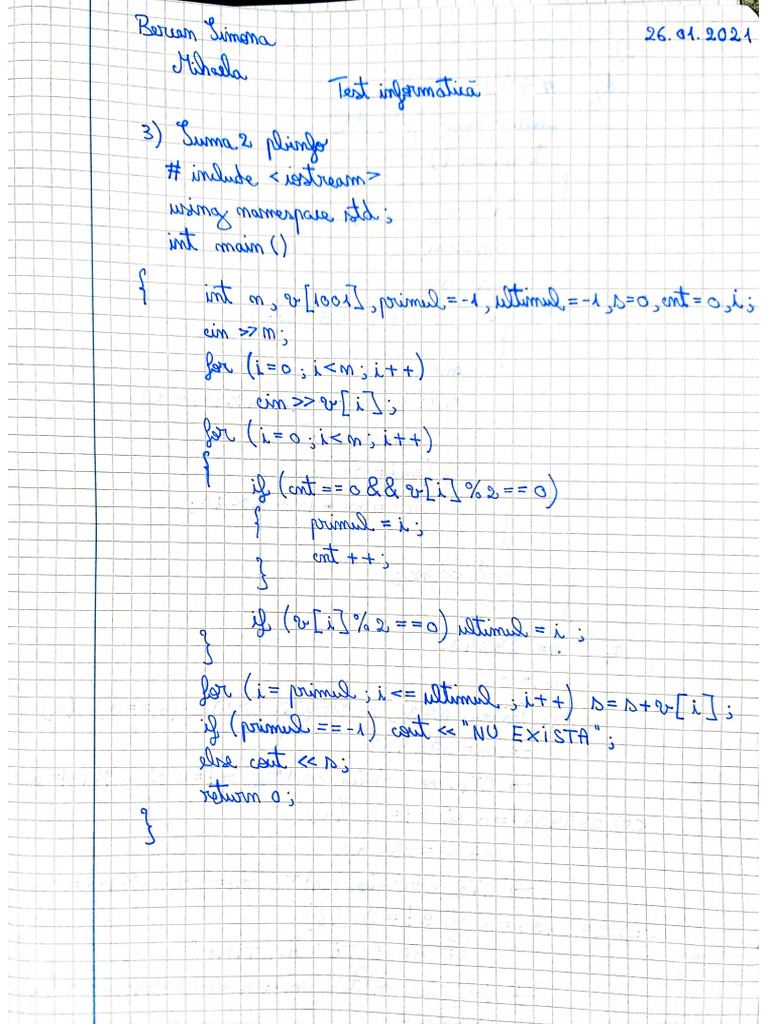 Bercan Simona
26.01.2021
Mihaela
Test informatică
3) Suma 2 pbinfo
# include <iostream>
using namespace std;
int main ()
{
int n, v[1001], primul=-1, ultimul=-1, s=0, cnt=0, i;
cin >> n;
for (i=0; i<n; i++)
cin >> v[i];
for (i=0; i<n; i++)
{
if (cnt == 0 && v[i] % 2 == 0)
{ primul = i;
cnt ++;
}
if (v[i] % 2 == 0) ultimul = i ;
}
for (i= primul; i<= ultimul ; i++) s=s+v[i];
if (primul == -1) cout << "NU EXISTA";
else cout << s;
return 0;
}